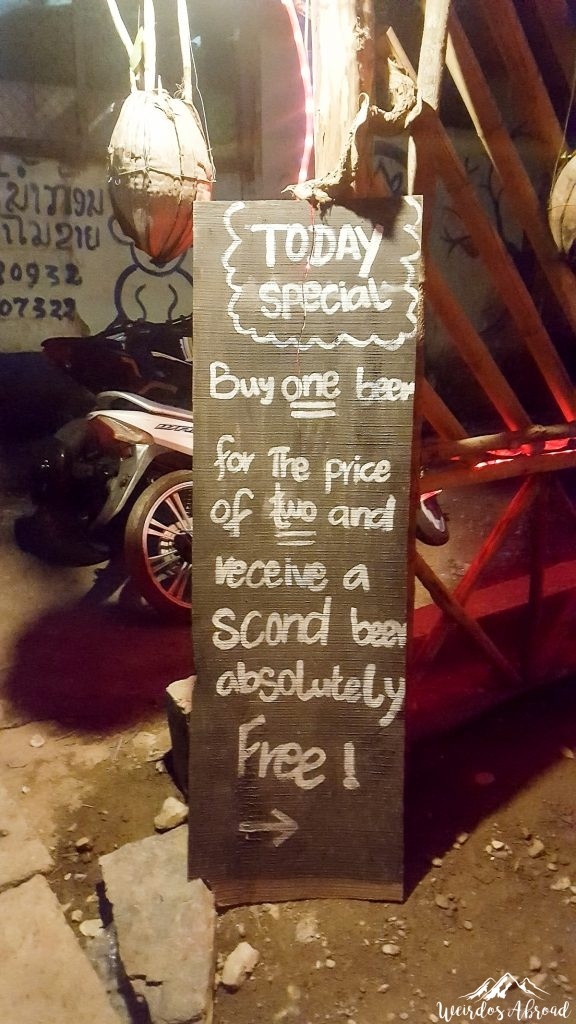 TODAY
special
Buy one beer
for The price
of two and
receive a
scond beer
absolutely
Free!
→
30932
07322
Weirdos Abroad